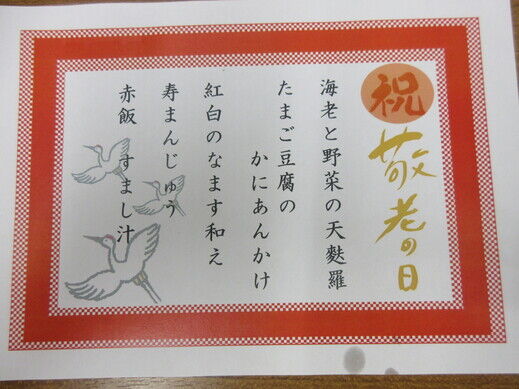 祝
敬老の日
海老と野菜の天麩羅
たまご豆腐の
かにあんかけ
紅白のなます和え
寿まんじゅう
赤飯 すまし汁